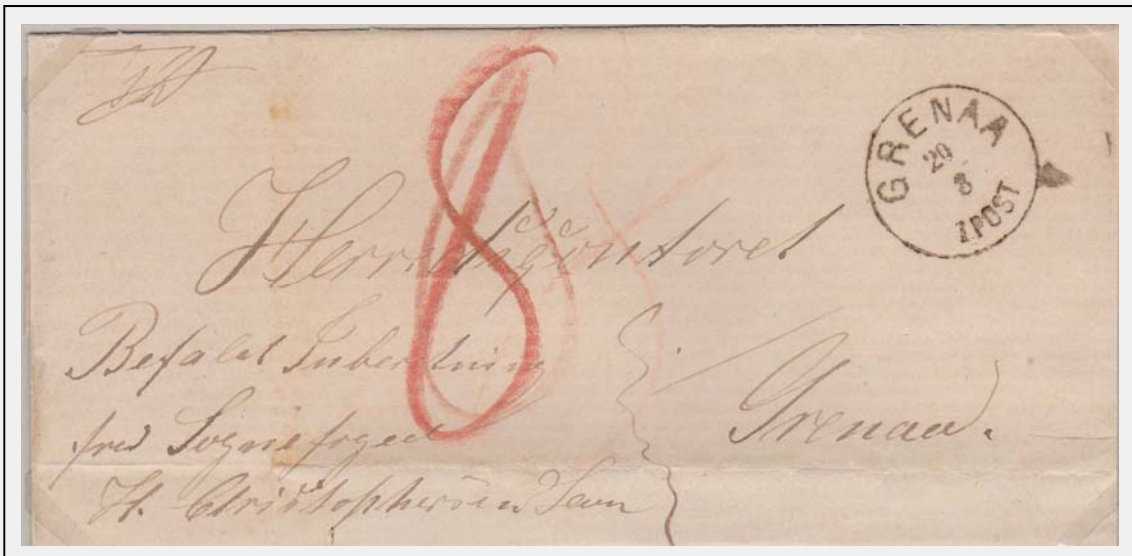 8
GRENAA
20
8
1 POST
Herredscontoret
Befalet Indberetning
fra Sognefoged
H. Christophersen
Grenaa.